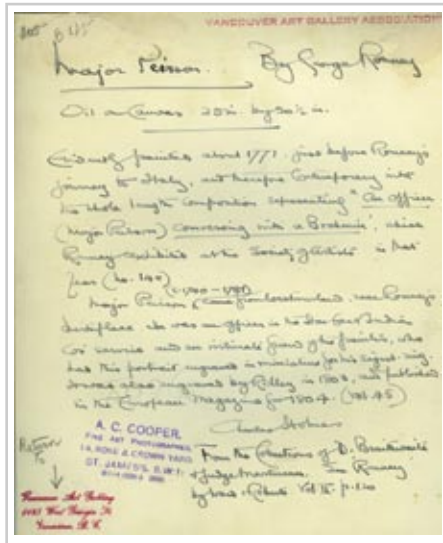 VANCOUVER ART GALLERY ASSOCIATION
Major Peirson. By George Romney
Oil on Canvas 25 in. by 30½ in.
Evidently painted about 1771, just before Romney's
journey to Italy, and therefore contemporary with
his whole length composition representing "An Officer
(Major Peirson) conversing with a Brahmin", which
Romney exhibited at the Society of Artists in that
year (No. 140)
Major Peirson, came from Westmorland, near Romney's
birthplace. He was an officer in the East India
Co's service and an intimate friend of the painter, who
had this portrait engraved in miniature for his
It was also engraved by Ridley in 1804, and published
in the European Magazine for 1804. (Vol. 45)
A. C. COOPER,
FINE ART PHOTOGRAPHER,
ROSE & CROWN YARD
ST. JAMES'S, S.W.1.
From the Collections of D. Braithwaite
& Judge
by Ward & Roberts Vol II. p. 120
Return
To
Vancouver Art Gallery
1145 West Georgia St
Vancouver, B. C.